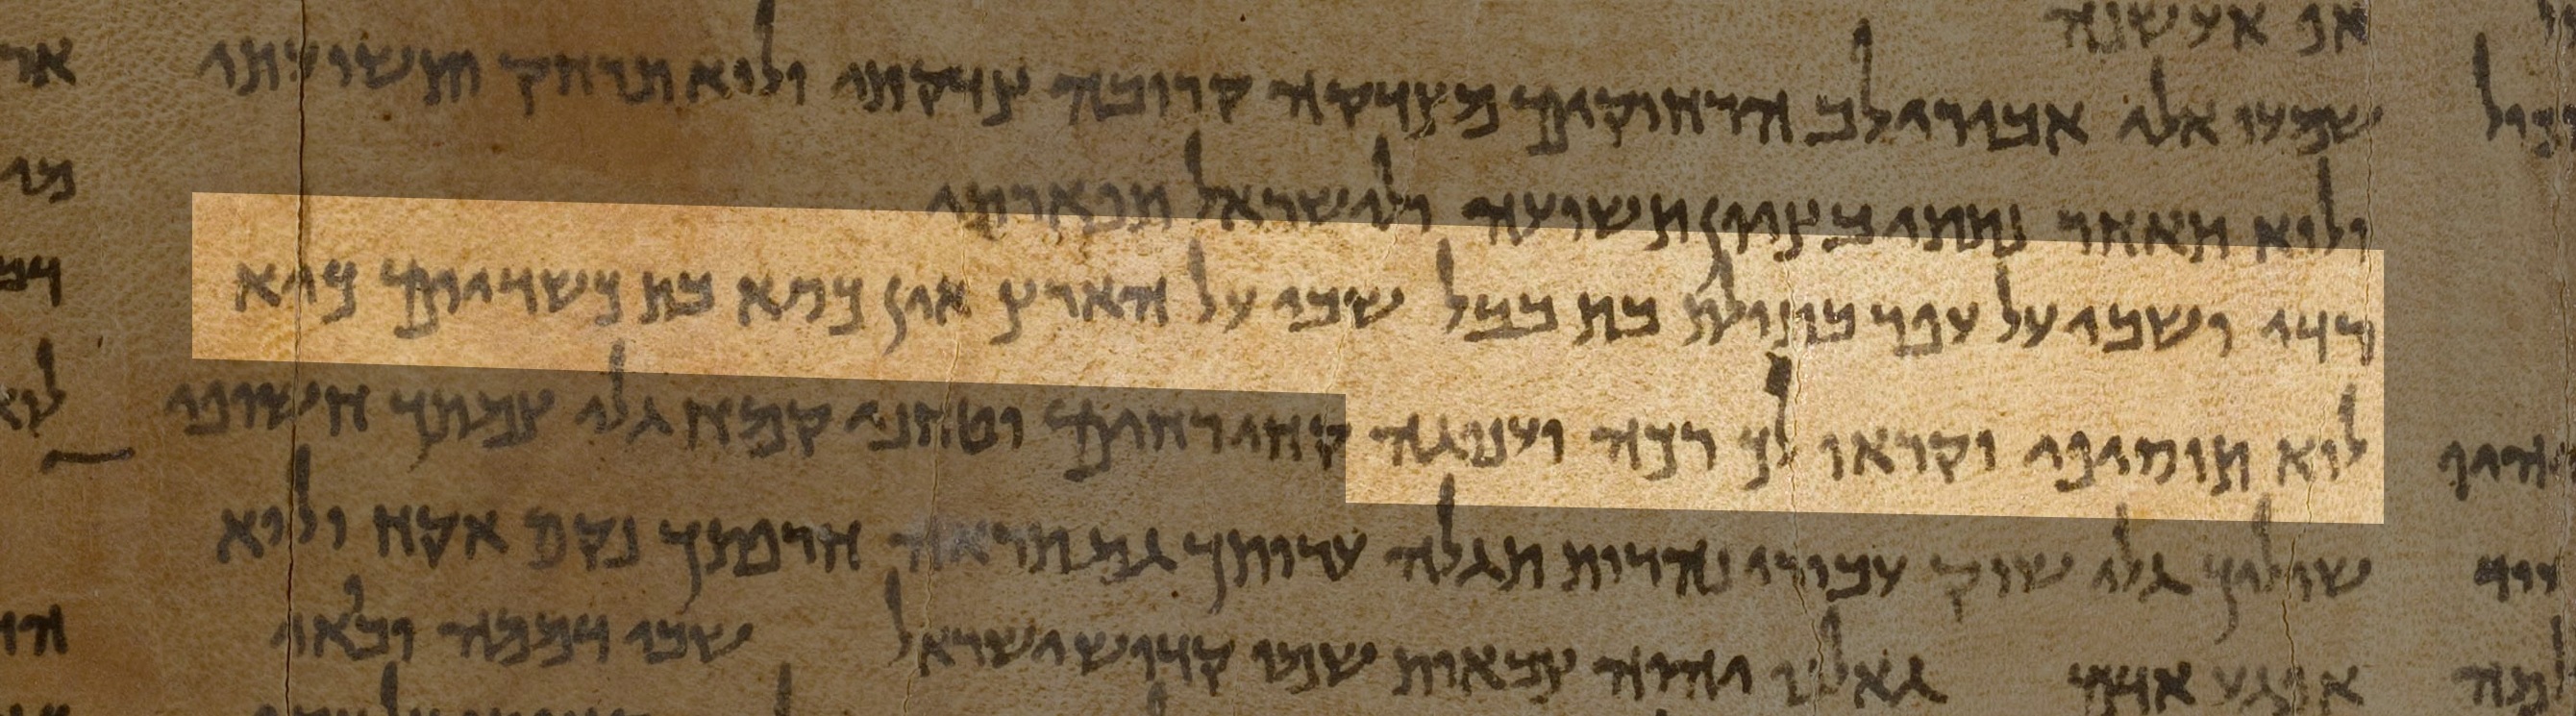 אפ אעשנה
שמעו אלי אבירי לב הרחוקים מצדקה קרובה צדקתי ולוא תרחק ותשועתי
ולוא תאחר נתתי בציון תשועה ולישראל תפארתי
רדי ושבי על עפר בתולת בת בבל שבי על הארץ אין כסא בת כשדיים כיא
לוא תוסיפי וקראו לך רכה וענוגה קחי רחים וטחני קמח גלי צמתך חשופי
שוליך גלי שוק עבורי נהרות תגלה ערותך גם תראה חרפתך נקם אקח ולוא
אפגע אדם גאלנו יהוה צבאות שמו קדוש ישראל שבי דממה ובאי